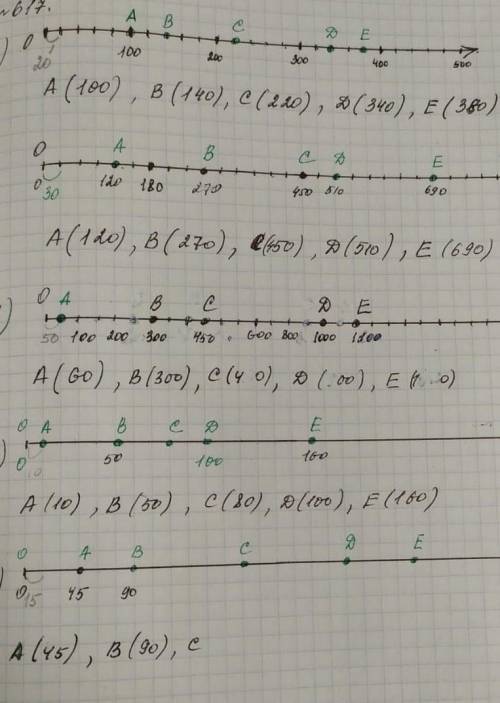 №617.
A B C D E
0 20 100 200 300 400 500
A(100), B(140), C(220), D(340), E(380)
0 A B C D E
0 30 120 180 270 450 510 690
A(120), B(270), C(450), D(510), E(690)
0 A B C D E
50 100 200 300 450 600 800 1000 1200
A(60), B(300), C(4 0), D( 00), E(1 0)
0 A B C D E
0 10 50 100 160
A(10), B(50), C(80), D(100), E(160)
0 A B C D E
0 15 45 90
A(45), B(90), C